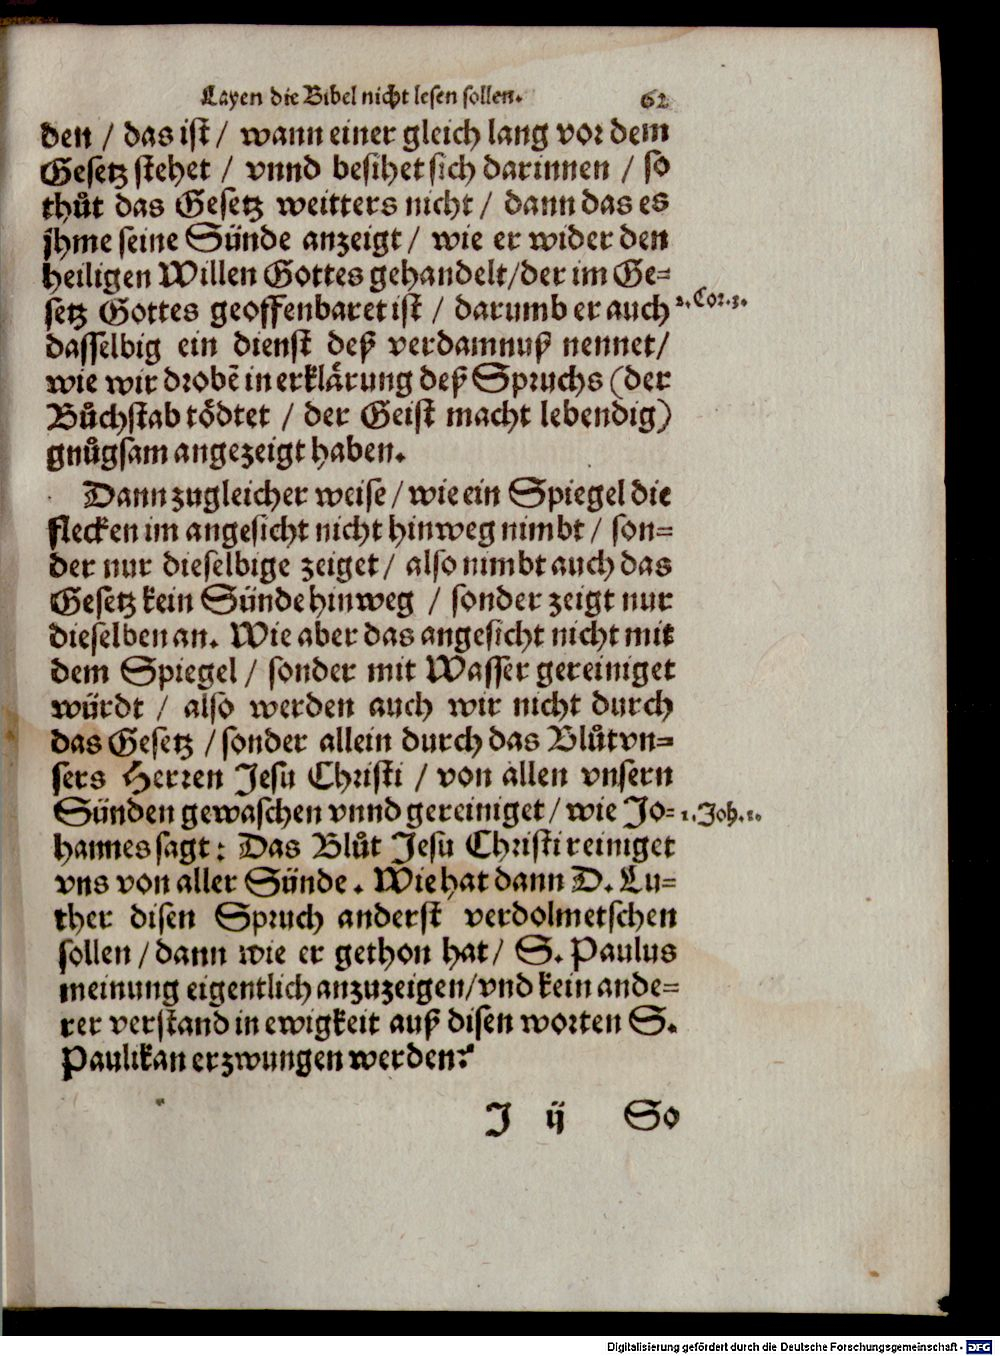 Layen die Bibel nicht lesen sollen. 62
den / das ist / wann einer gleich lang vor dem
Gesetz stehet / vnnd besihet sich darinnen / so
thůt das Gesetz weitters nicht / dann das es
jhme seine Sünde anzeigt / wie er wider den
heiligen Willen Gottes gehandelt/der im Ge-
setz Gottes geoffenbaret ist / darumb er auch
2. Cor. 3.
dasselbig ein dienst deß verdamnuß nennet/
wie wir drobē in erklärung deß Spruchs (der
Bůchstab tödtet / der Geist macht lebendig)
gnůgsam angezeigt haben.
Dann zugleicher weise / wie ein Spiegel die
flecken im angesicht nicht hinweg nimbt / son-
der nur dieselbige zeiget / also nimbt auch das
Gesetz kein Sünde hinweg / sonder zeigt nur
dieselben an. Wie aber das angesicht nicht mit
dem Spiegel / sonder mit Wasser gereiniget
würdt / also werden auch wir nicht durch
das Gesetz / sonder allein durch das Blůt vn-
sers Herren Jesu Christi / von allen vnsern
Sünden gewaschen vnnd gereiniget / wie Jo-
1. Joh. 1.
hannes sagt: Das Blůt Jesu Christi reiniget
vns von aller Sünde. Wie hat dann D. Lu-
ther disen Spruch anderst verdolmetschen
sollen / dann wie er gethon hat / S. Paulus
meinung eigentlich anzuzeigen/vnd kein ande-
rer verstand in ewigkeit auß disen worten S.
Pauli kan erzwungen werden?
J ij So
Digitalisierung gefördert durch die Deutsche Forschungsgemeinschaft - DFG